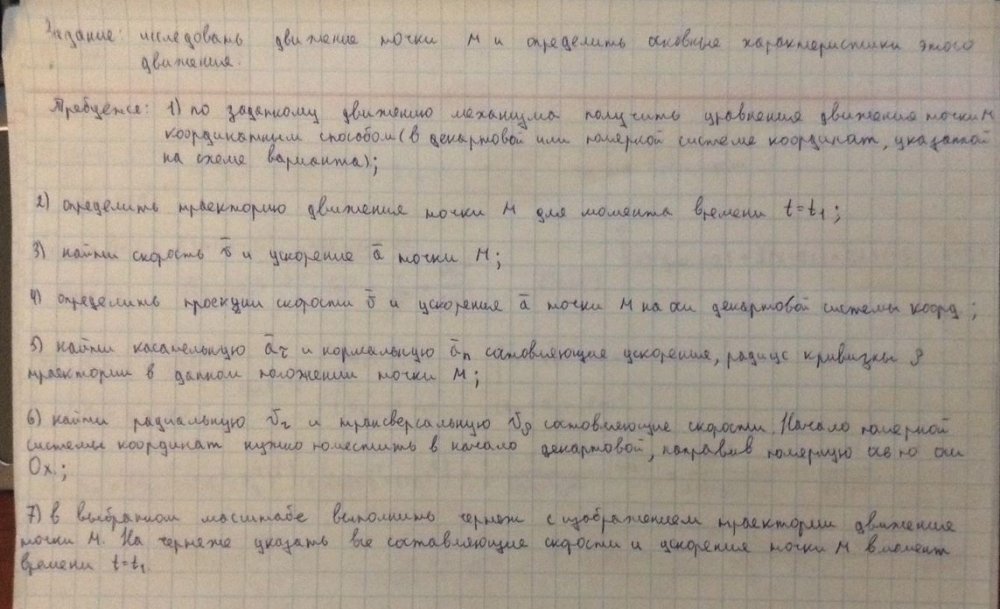 Задание: исследовать движение точки М и определить основные характеристики этого
движения.
Требуется: 1) по заданному движению механизма получить уравнения движения точки М
координатным способом (в декартовой или полярной системе координат, указанной
на схеме варианта);
2) определить траекторию движения точки М для момента времени t=t₁;
3) найти скорость v̄ и ускорение ā точки М;
4) определить проекции скорости v̄ и ускорения ā точки М на оси декартовой системы коорд;
5) найти касательную ā_τ и нормальную ā_n составляющие ускорения, радиус кривизны ρ
траектории в данном положении точки М;
6) найти радиальную v_r и трансверсальную v_φ составляющие скорости. Начало полярной
системы координат нужно поместить в начало декартовой, направив полярную ось по оси
Ox;
7) в выбранном масштабе выполнить чертеж с изображением траектории движения
точки М. На чертеже указать все составляющие скорости и ускорения точки М в момент
времени t=t₁